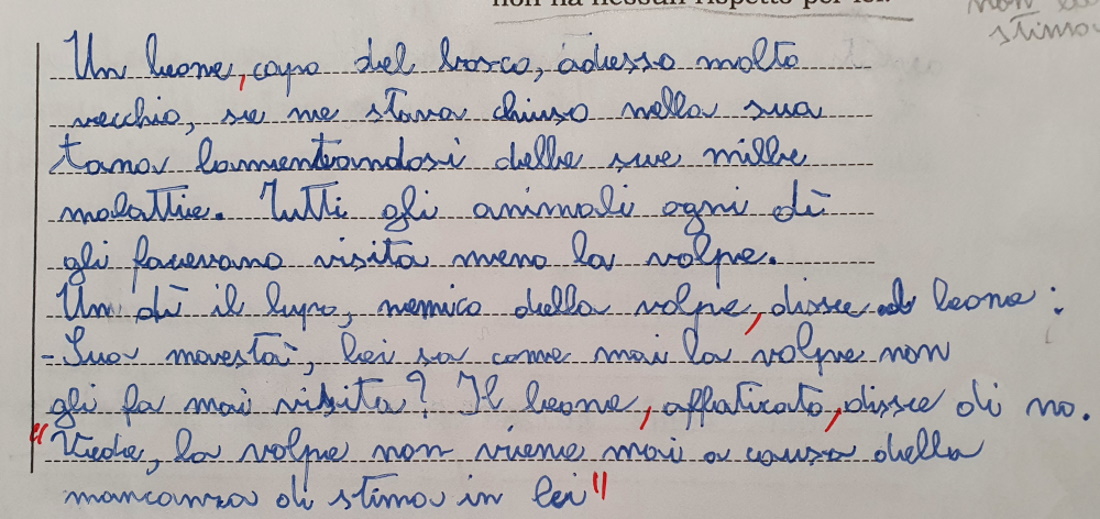 non ha nessun rispetto per lei.
non
stima
Un leone, capo del bosco, adesso molto
vecchio, se ne stava chiuso nella sua
tana lamentandosi delle sue mille
malattie. Tutti gli animali ogni dì
gli facevano visita meno la volpe.
Un dì il lupo, nemico della volpe, disse al leone:
-Sua maestà, lei sa come mai la volpe non
gli fa mai visita? Il leone, affaticato, disse di no.
"Vede, la volpe non viene mai a causa della
mancanza di stima in lei"